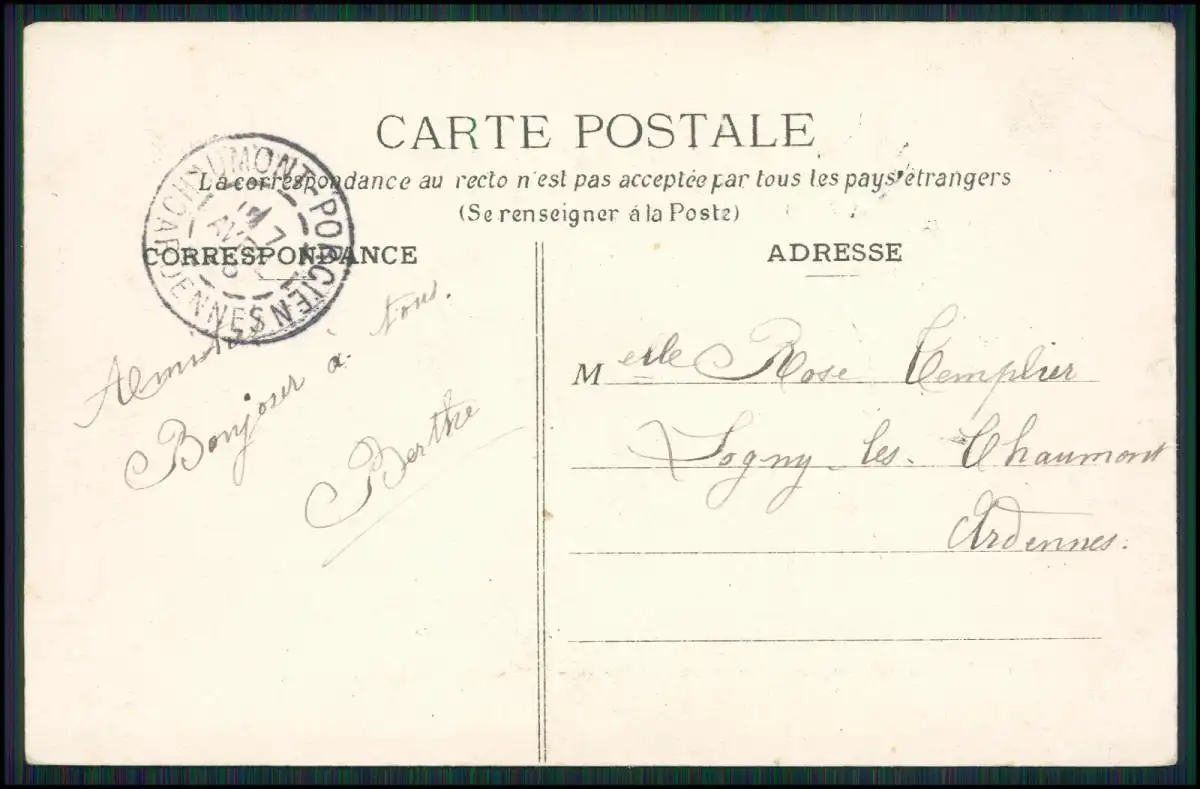 CARTE POSTALE
La correspondance au recto n'est pas acceptée par tous les pays étrangers
(Se renseigner à la Poste)
CHAUMONT-PORCIEN
7
AVRIL
ARDENNES
CORRESPONDANCE
Amitiés
Bonjour à tous.
Berthe
ADRESSE
Melle Rose Templier
Logny-les-Chaumont
Ardennes.